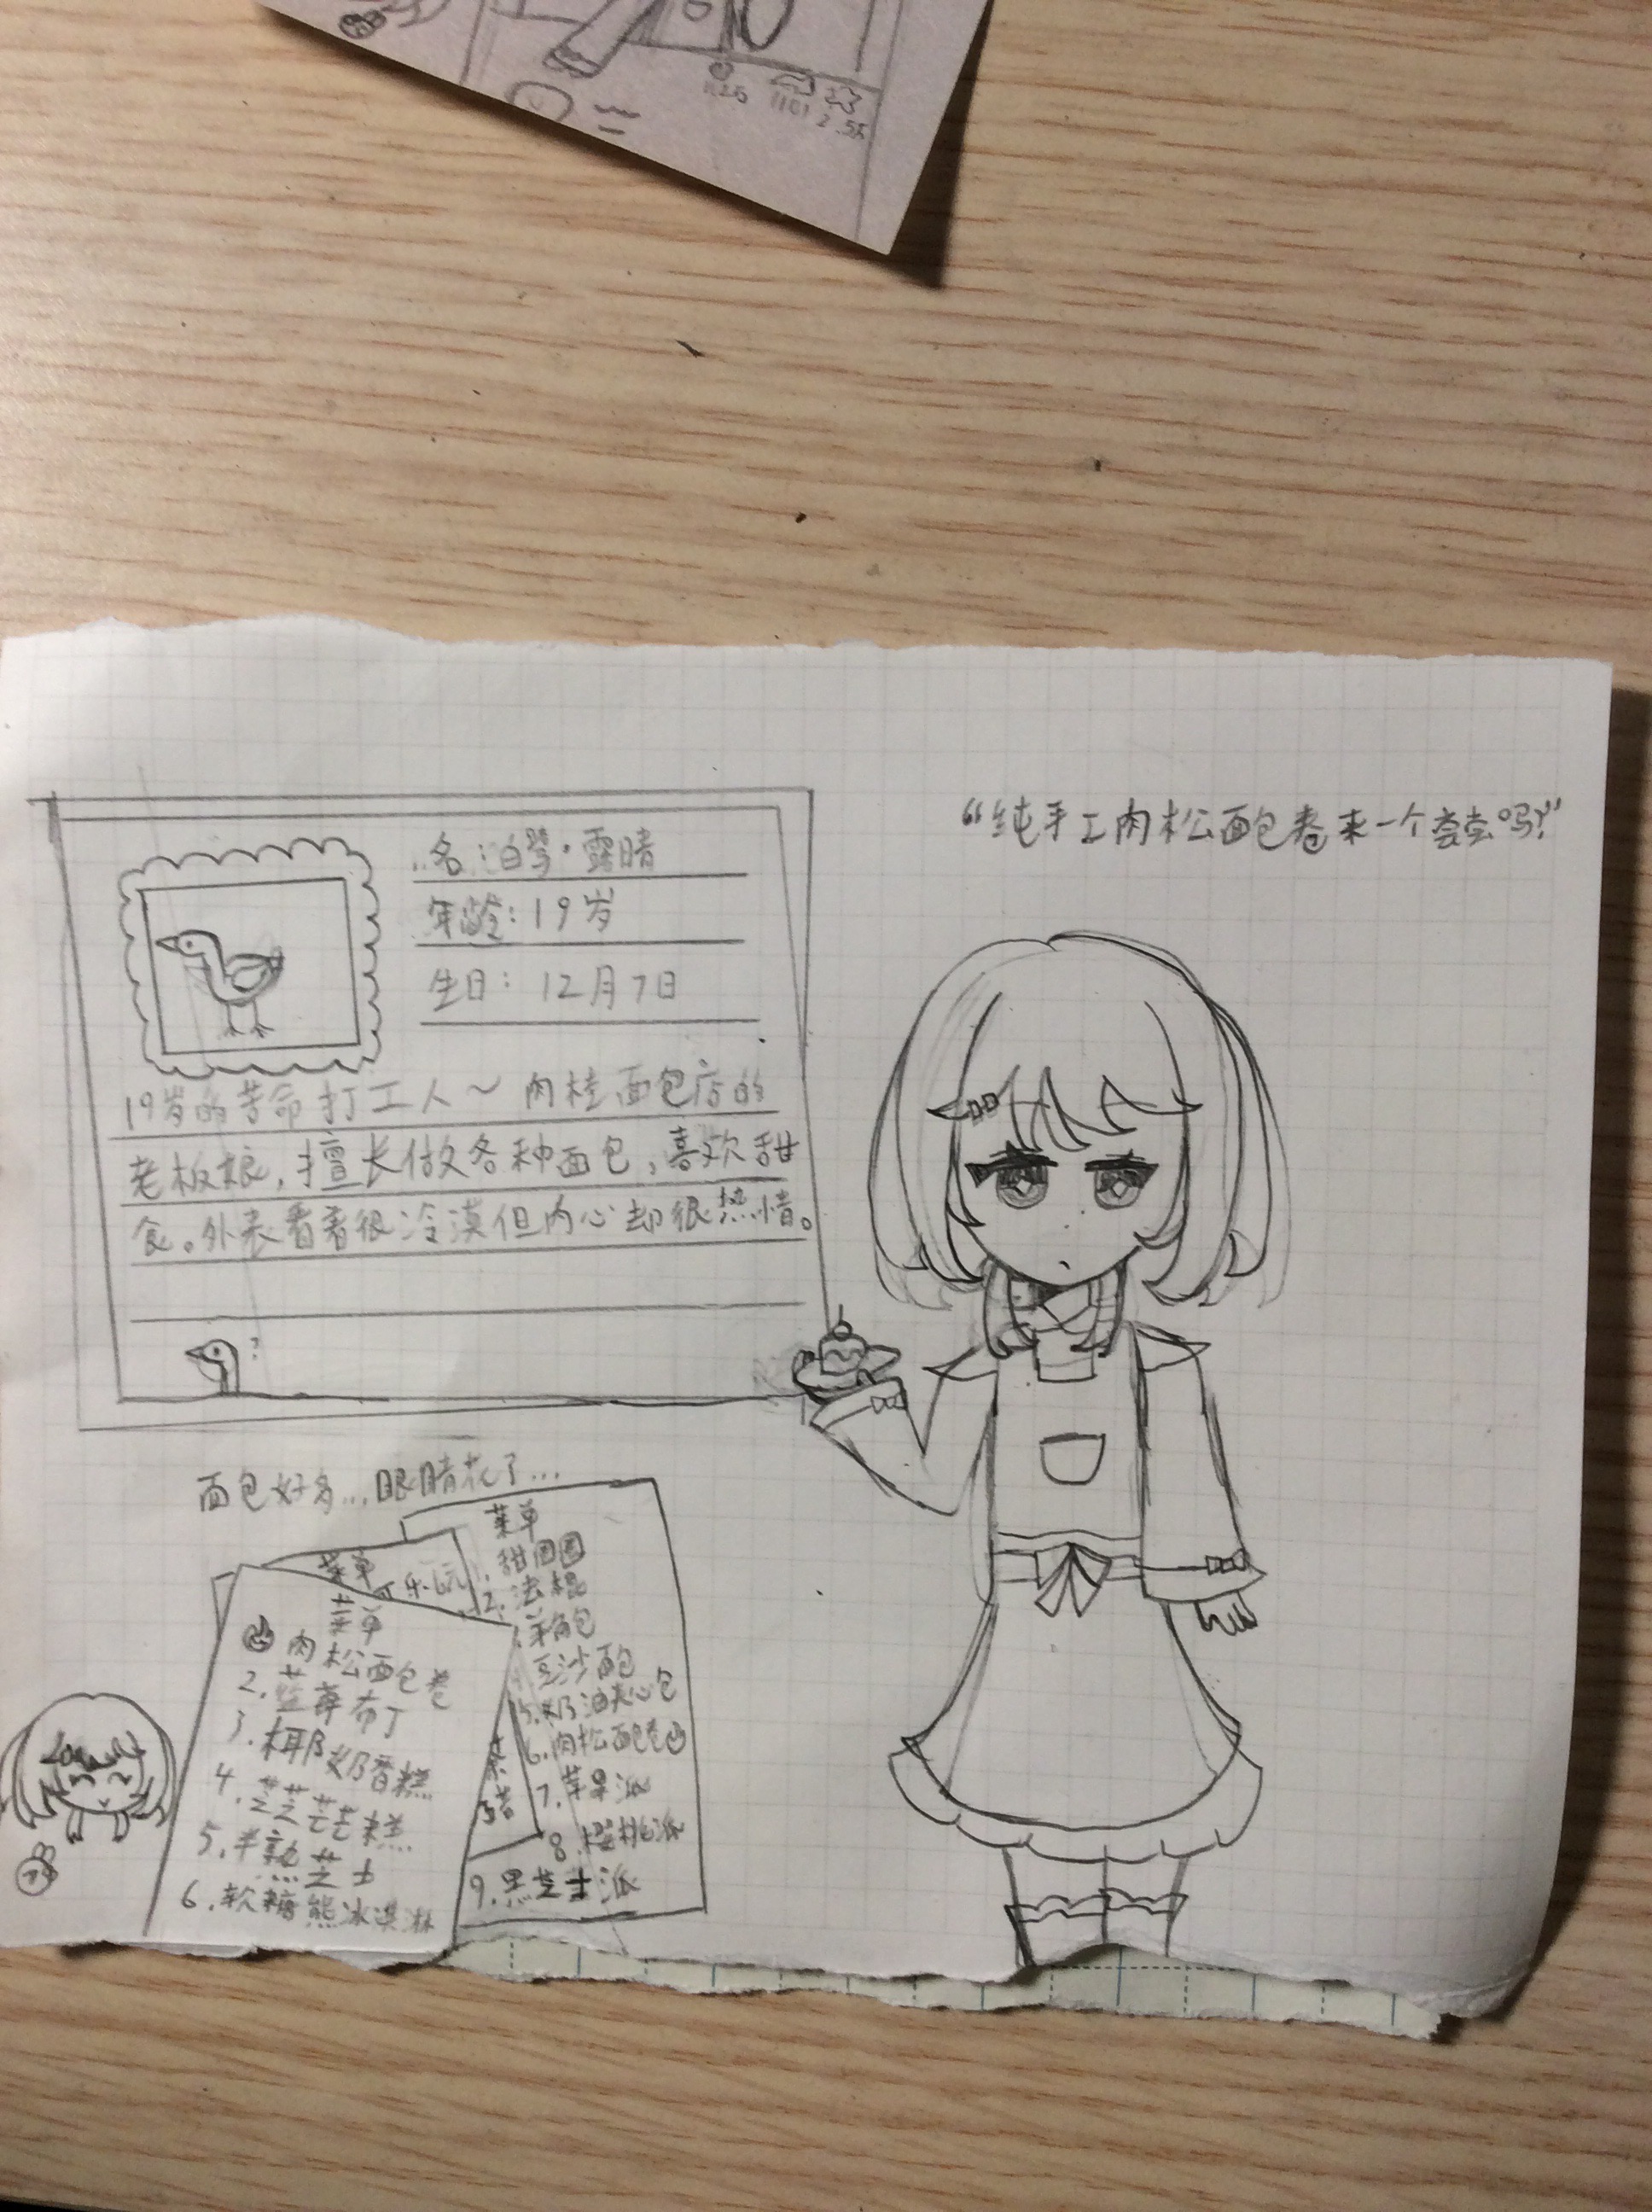 “纯手工肉松面包卷来一个尝尝吗？”
名：白鹭·露晴
年龄：19岁
生日：12月7日
19岁的苦命打工人～肉桂面包店的
老板娘，擅长做各种面包，喜欢甜
食。外表看着很冷漠但内心却很热情。
?
面包好多...眼睛花了...
菜单
1.甜圈圈
2.法棍
羊角包
豆沙面包
5.奶油夹心包
6.肉松面包卷
7.苹果派
8.樱桃派
9.黑芝士派
菜单
菜单
肉松面包卷
2.蓝莓布丁
3.椰奶香糕
4.芝芝芒芒糕
5.半熟芝士
6.软糖熊冰淇淋